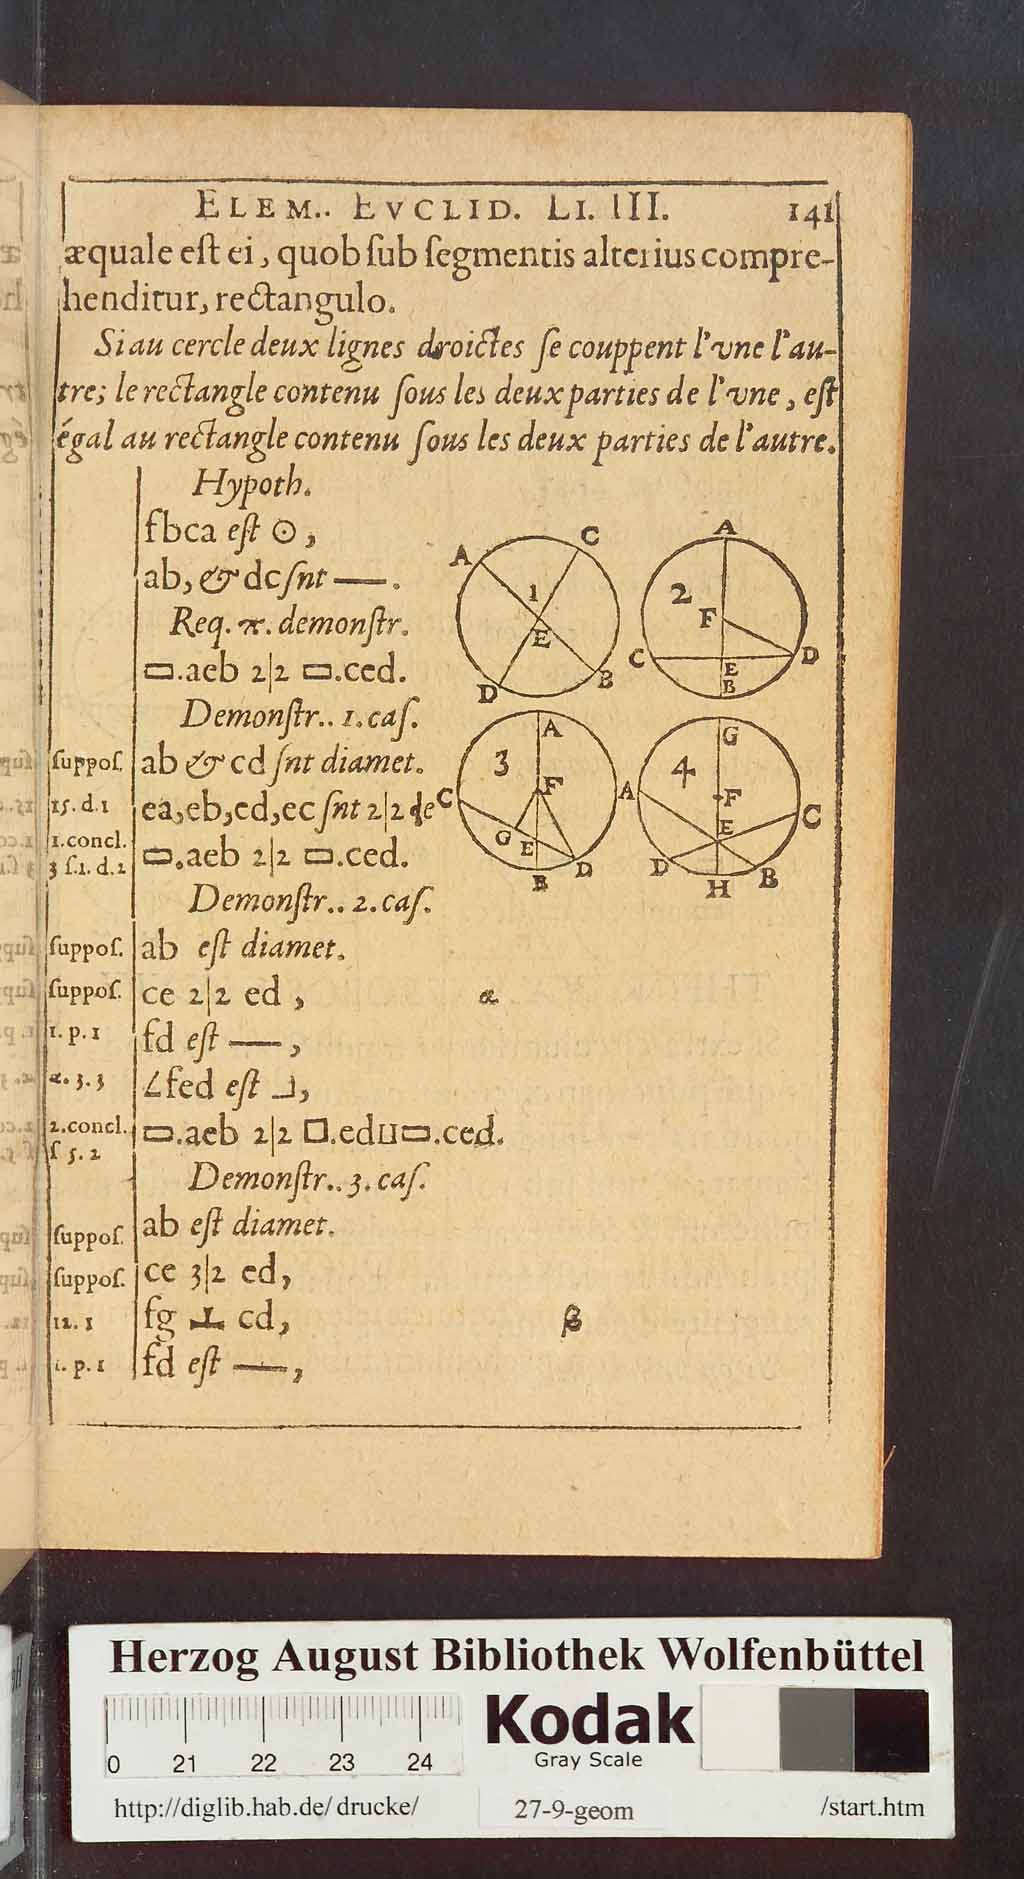 ELEM.. EVCLID. LI. III. 141
æquale eſt ei, quob ſub ſegmentis alterius compre-
henditur, rectangulo.
Si au cercle deux lignes droictes ſe couppent l'vne l'au-
tre; le rectangle contenu ſous les deux parties de l'vne, eſt
égal au rectangle contenu ſous les deux parties de l'autre.
Hypoth.
fbca eſt ⊙,
ab, & dc ſnt —.
Req. π. demonſtr.
▭.aeb 2|2 ▭.ced.
Demonſtr.. 1. caſ.
ſuppoſ. ab & cd ſnt diamet.
15. d. 1 ea, eb, ed, ec ſnt 2|2 de
1. concl.
3 ſ. 1. d. 2 ▭.aeb 2|2 ▭.ced.
Demonſtr.. 2. caſ.
ſuppoſ. ab eſt diamet.
ſuppoſ. ce 2|2 ed, α
1. p. 1 fd eſt —,
α. 3. 3 ∠fed eſt ⅃,
2. concl. ▭.aeb 2|2 □.ed⊔▭.ced.
ſ 5. 2
Demonſtr.. 3. caſ.
ſuppoſ. ab eſt diamet.
ſuppoſ. ce 3|2 ed,
12. 1 fg ⊥ cd, β
1. p. 1 fd eſt —,
A C 1 E D B
A 2 F C D E B
A 3 F C G E D B
G 4 A F E C D H B
Herzog August Bibliothek Wolfenbüttel
0 21 22 23 24
Kodak
Gray Scale
http://diglib.hab.de/drucke/ 27-9-geom /start.htm